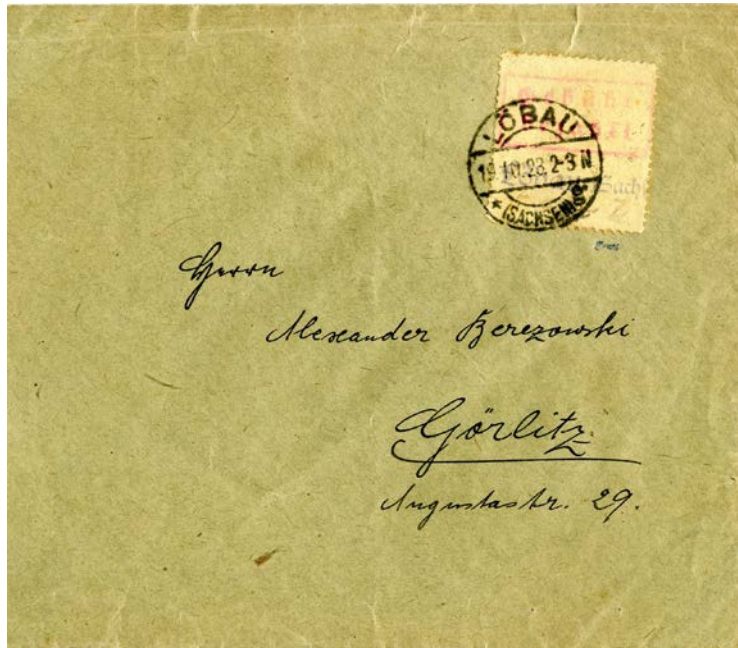 LÖBAU
19.10.23. 2-3 N
* (SACHSEN)
Herrn
Alexander Berezowski
Görlitz
Augustastr. 29.